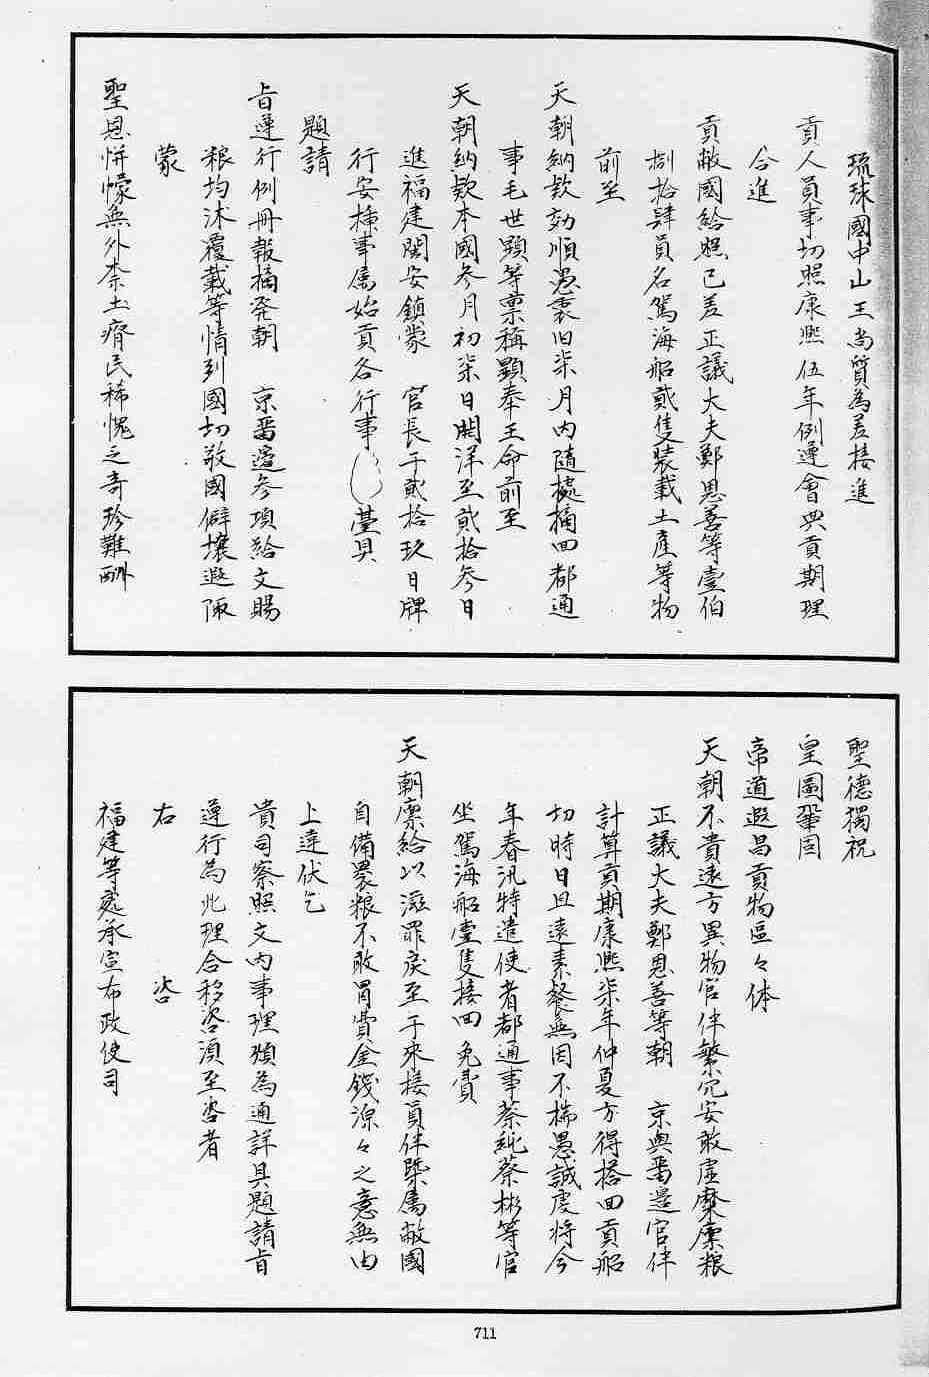 琉球國中山王尚質為差接進
貢人員事切照康熙伍年例遵會典貢期理
合進
貢敝國給照已差正議大夫鄭思善等壹伯
捌拾肆員名駕海船貳隻裝載土產等物
前至
天朝納款効順愚衷旧柒月內隨摝摘回都通
事毛世顕等禀稱顕奉王命前至
天朝納款本國叁月初柒日開洋至貳拾叁日
進福建閩安鎮蒙 官長于貳拾玖日牌
行安挿事属始貢各行事 臺具
題請
旨遵行例冊報摘発朝 京畱邉叁項給文賜
粮均沭覆載等情到國切敝國僻壤遐陬
蒙
聖恩帡幪無外柰土瘠民稀愧乏奇珍難酬
聖德獨祝
皇圖鞏固
帝道遐昌貢物區々体
天朝不貴遠方異物官伴繁冗安敢虛糜廩粮
正議大夫鄭思善等朝 京與畱邉官伴
計算貢期康熙柒年仲夏方得搭回貢船
切時日且遠素餐無因不揣愚誠虔將今
年春汛特遣使者都通事蔡 蔡彬等官
坐駕海船壹隻接回免費
天朝廩給以滋罪戾至于來接員伴槩属敝國
自備褁粮不敢冒賞金錢源々之意無由
上達伏乞
貴司察照文內事理煩為通詳具題請旨
遵行為此理合移咨須至咨者
右 咨
福建等處承宣布政使司
711